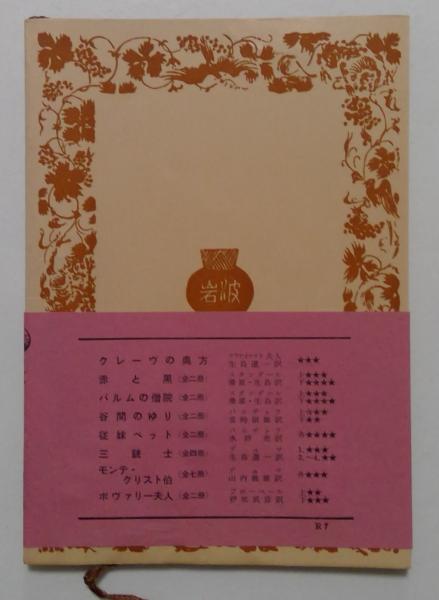 岩波
クレーヴの奥方 ラファイエット夫人 生島遼一訳 ★★★
赤と黒(全二冊) スタンダール 桑原・生島訳 上★★★ 下★★★★
パルムの僧院(全二冊) スタンダール 生島訳 上★★★ 下★★★★
谷間のゆり(全二冊) バルザック 宮崎嶺雄訳 上★★ 下★★
従妹ベット(全二冊) バルザック 水野亮訳 各★★★★
三銃士(全四冊) デュマ 生島遼一訳 1.★★★ 2.~4.★★
モンテ・クリスト伯(全七冊) デュマ 山内義雄訳 各★★★
ボヴァリー夫人(全二冊) フローベール 伊吹武彦訳 上★★ 下★★★
R7